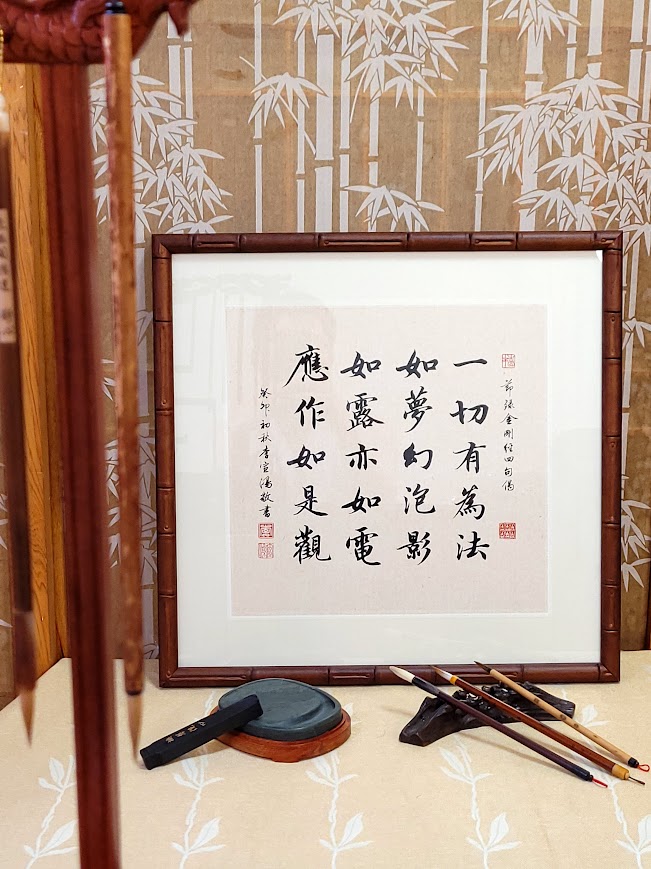 節録金剛經四句偈
一切有為法
如夢幻泡影
如露亦如電
應作如是觀
癸卯初秋李宣鴻敬書